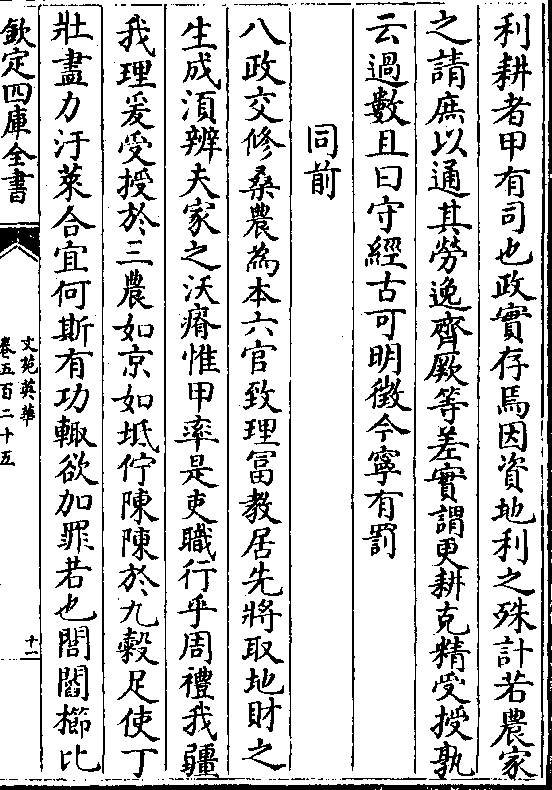 利耕者甲有司也政實存焉因資地利之殊計若農家
之請庶以通其勞逸齊厥等差實謂更耕克精受授孰
云過數且曰守經古可明徵今寧有罰
同前
八政交修桑農為本六官致理冨教居先將取地財之
生成湏辨夫家之沃瘠惟甲率是吏職行乎周禮我疆
我理爰受授於三農如京如坻佇陳陳於九糓足使丁
壯盡力汙萊合宜何斯有功輙欲加罪若也閭閻櫛比
欽定四庫全書
文苑英華
卷五百二十五
十一